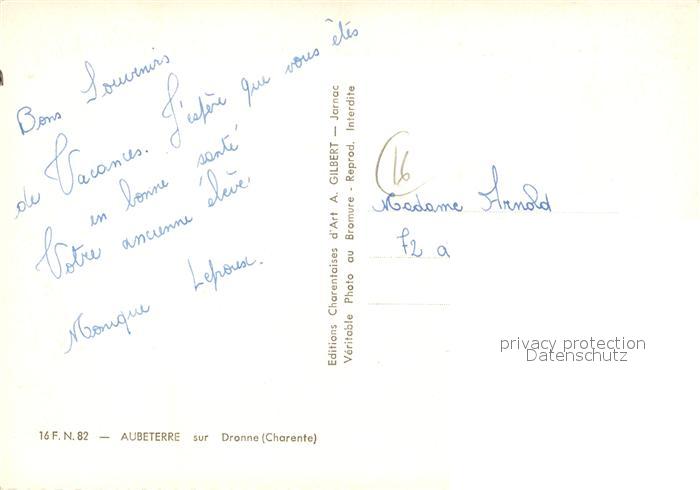 Bons Souvenirs
de Vacances. J'espère que vous êtes
en bonne santé
Votre ancienne élève.
Monique
Editions Charentaises d'Art A. GILBERT — Jarnac
Véritable Photo au Bromure - Reprod. Interdite
16
Madame Arnold
72 a
privacy protection
Datenschutz
16 F. N. 82 — AUBETERRE sur Dronne (Charente)